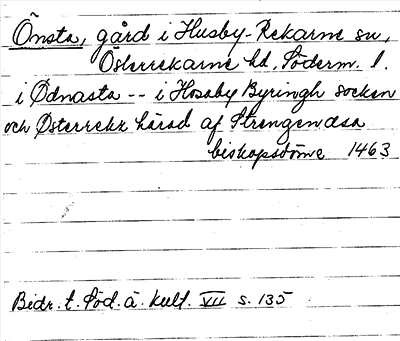 Önsta, gård i Husby-Rekarne sn,
Österrekarne hd, Söderm. l.
i Ødnasta -- i Hosaby Byringh socken
och Østerrekz härad af Strengenæsa
biskopsdöme 1463
Bidr. t. Söd. ä. kult. VII s. 135